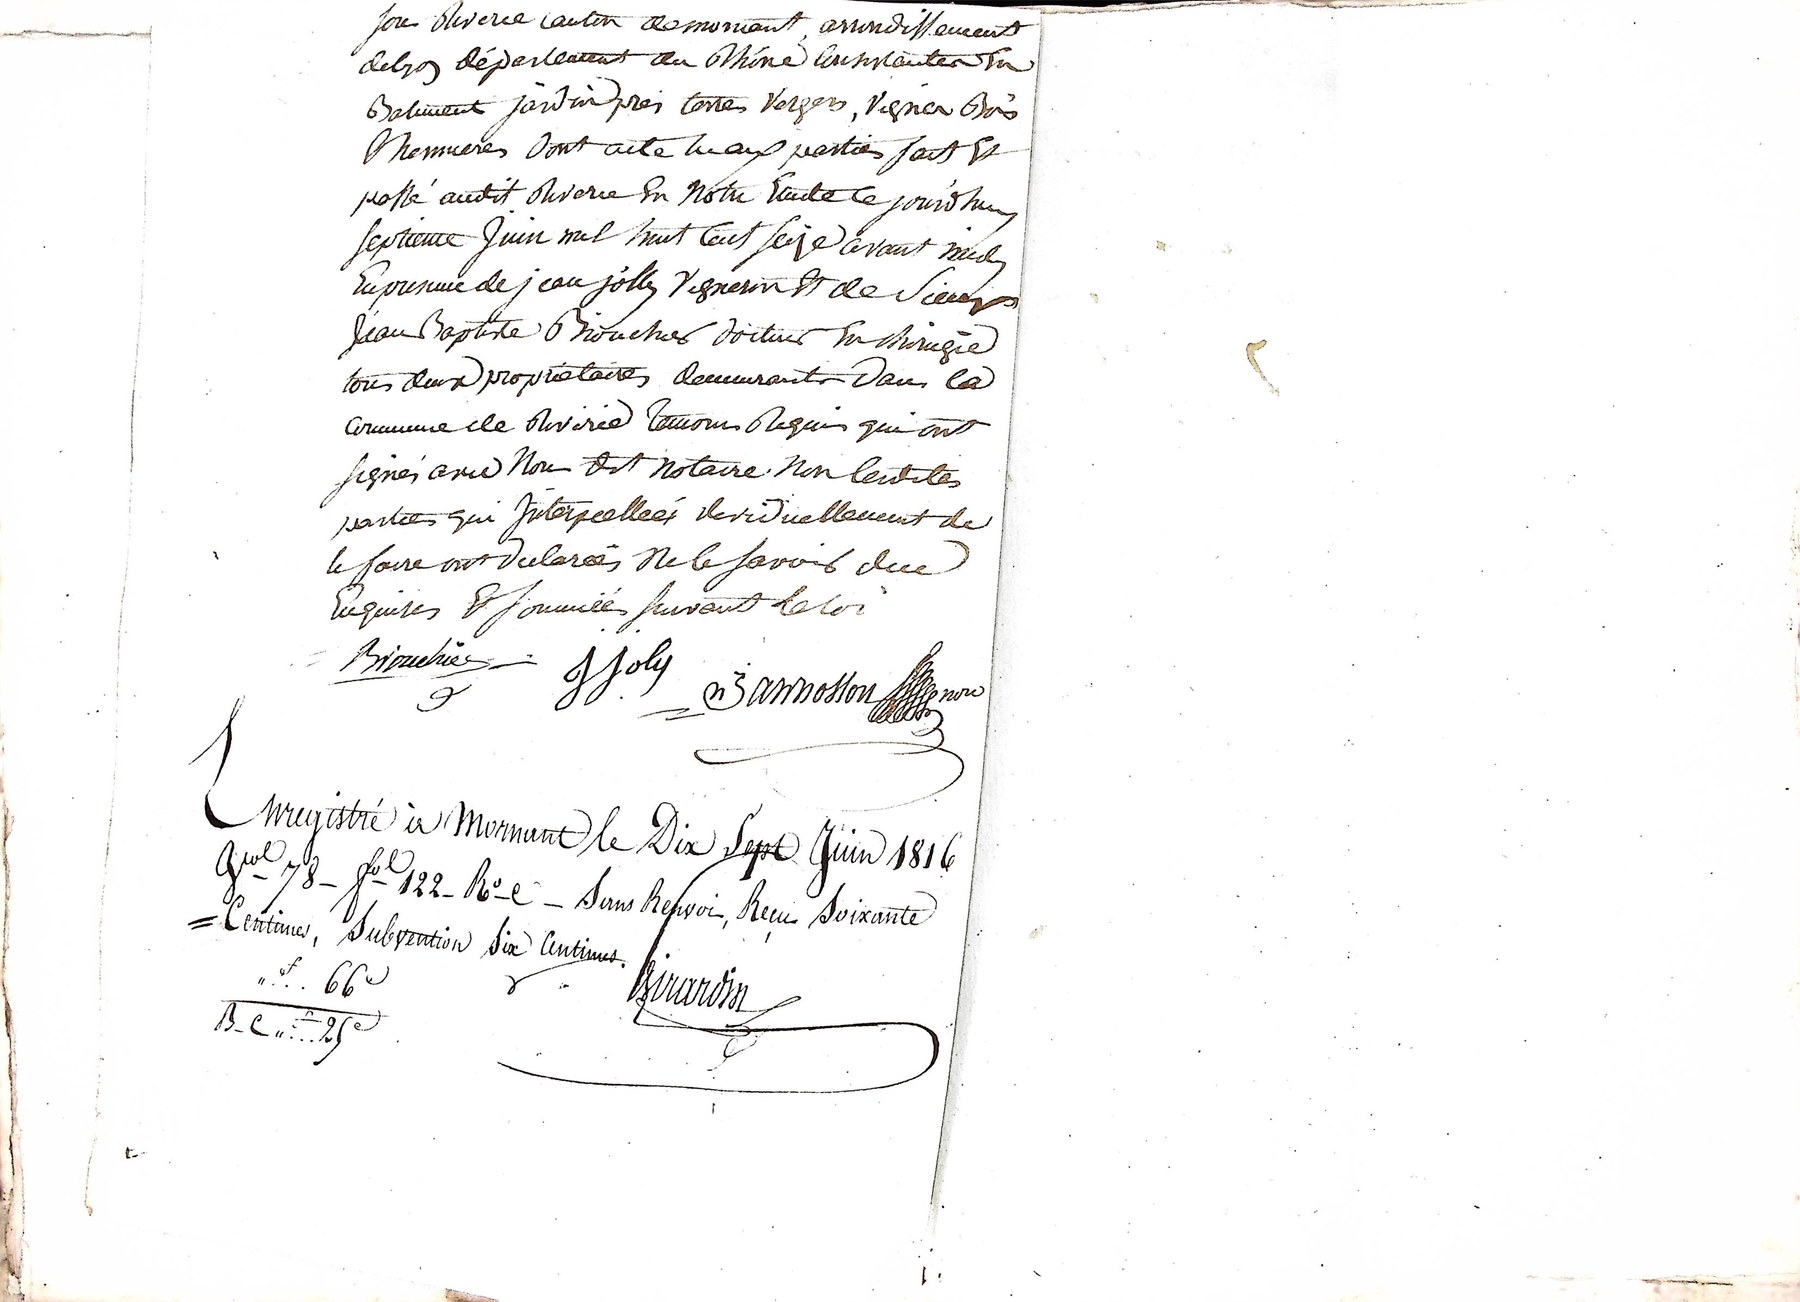 sous Riverie canton de mornant, arrondissement
de lyon département du Rhône Consistantes En
Batiment jardin près terres Vergers, Vignes Bois
Chennieres dont acte lu aux parties fait Et
passé audit Riverie En Notre Etude Ce jourd'huy
septieme Juin mil huit Cent seize avant midy
En presence de jean jolly Vigneron Et de Sieur
Jean Baptiste Brouchier docteur En chirugie
tous deux propriétaires demeurants Dans la
commune de Riverie temoins Requis qui ont
signés avec Nous dit Notaire Non lesdites
parties qui Interpellées
le faire ont declarées Ne le savoir de ce
Enquises Et sommées suivant la loi
Brouchier
j joly
Bannosson nore
Enregistré à Mornant le Dix Sept Juin 1816
vol 78 - fol 122 - Ro - C - Sans Renvoi, Reçu Soixante
= Centimes, Subvention Six Centimes.
„f... 66c
Girardin
B - C „f... 25c